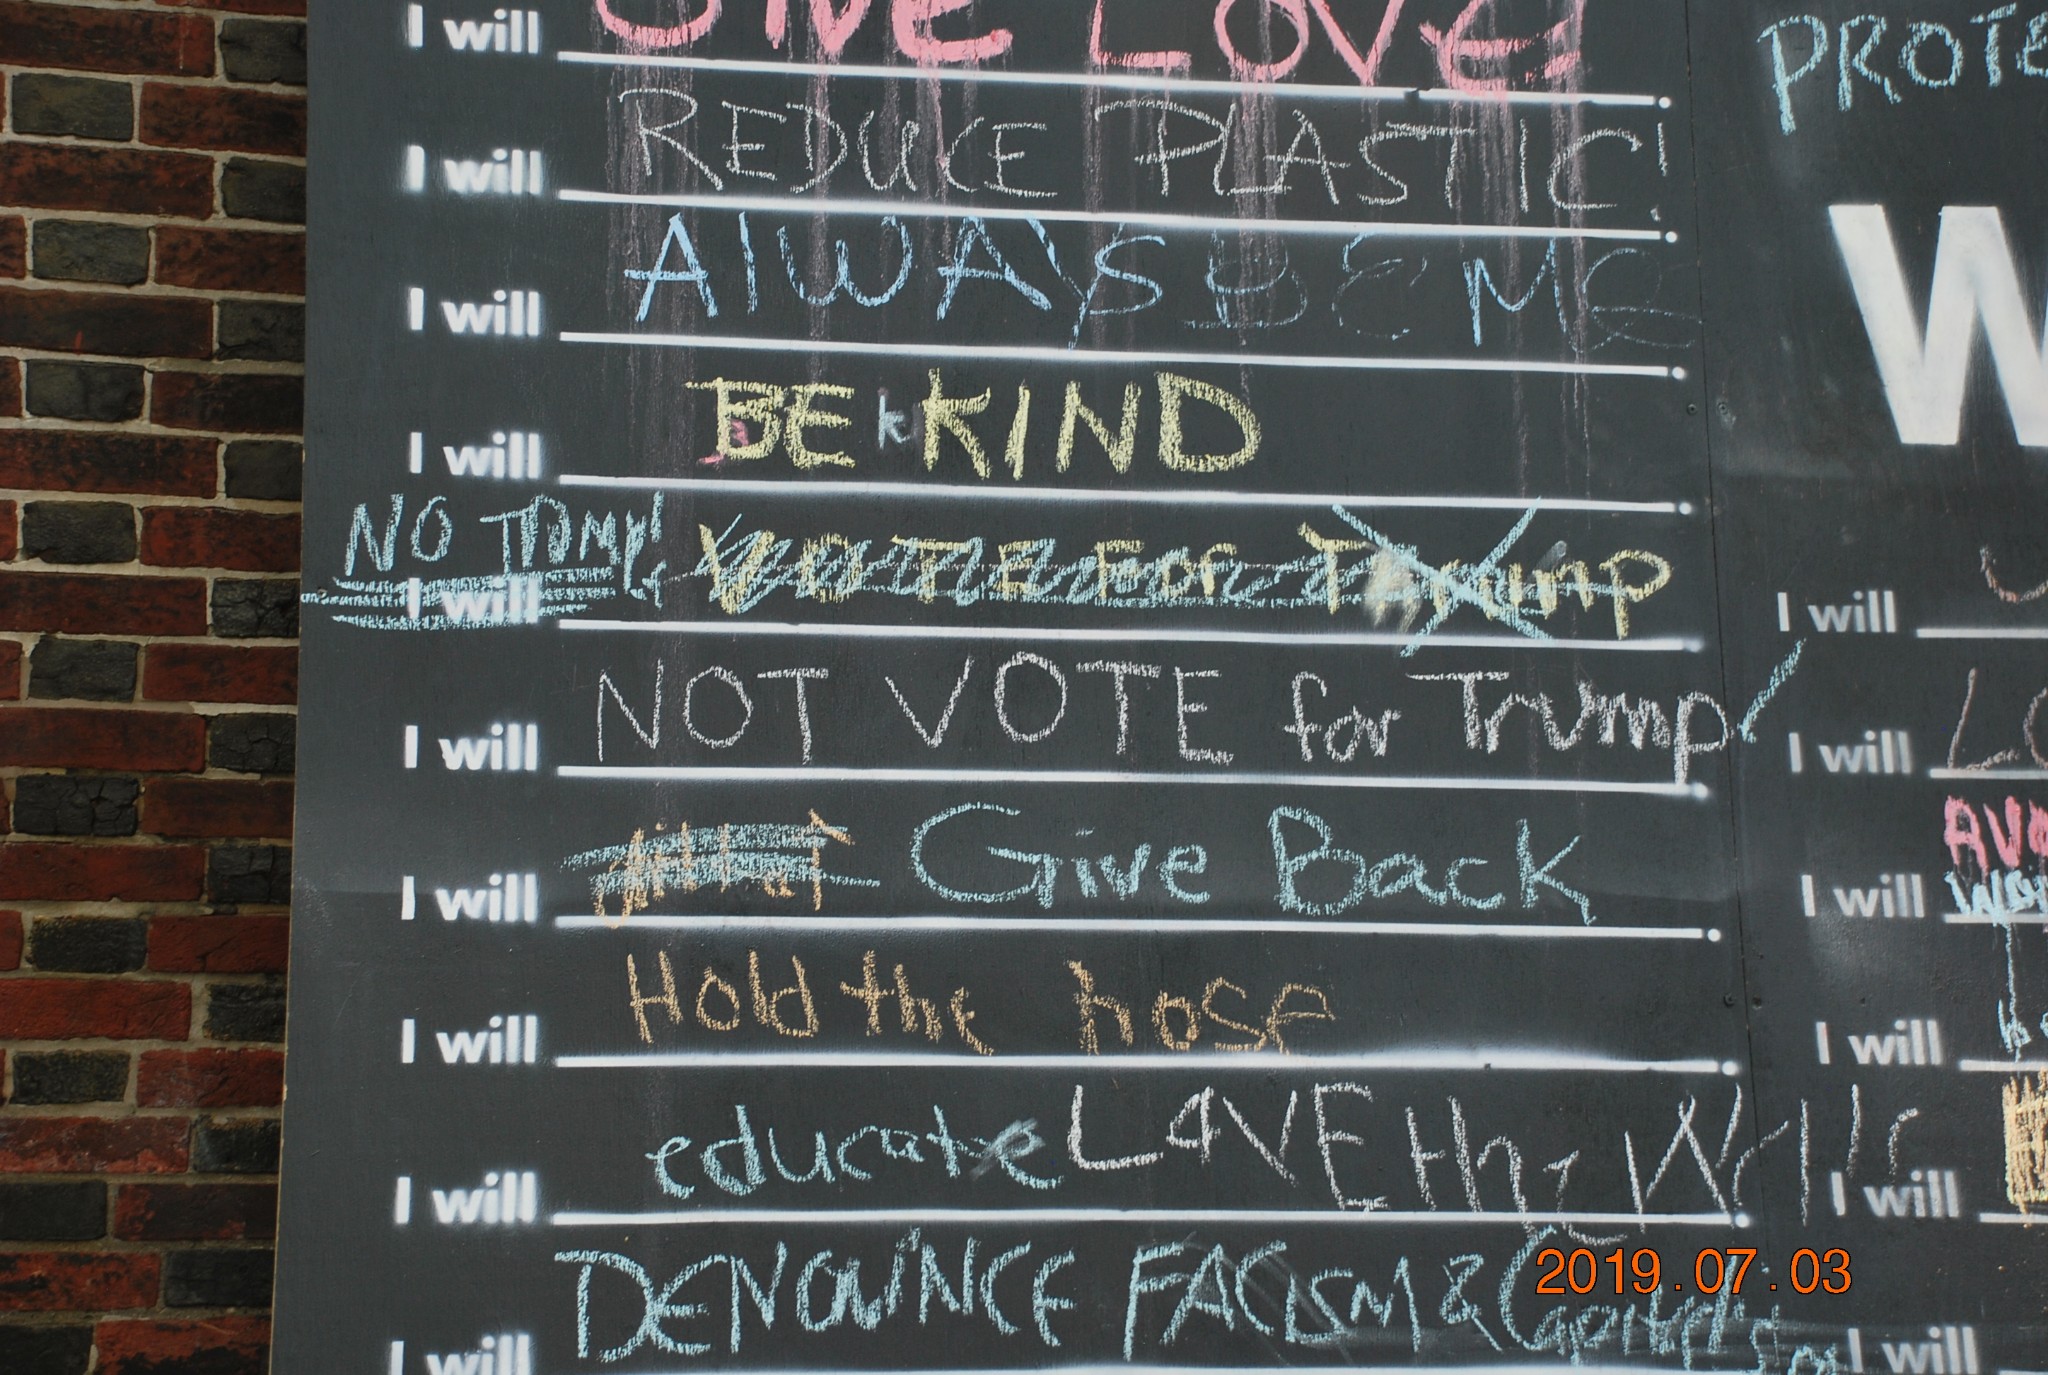 I will GIVE LOVE!
I will REDUCE PLASTIC!
I will AlWAYS BE Me
I will BE k KIND
NO TRUMP!
I will VOTE FOR Trump
I will NOT VOTE for Trump
I will Give Back
I will Hold the hose
I will educate LOVE
I will DENOUNCE FACISM & Capitalism
PROTE
W
I will
I will LO
I will
I will
I will
I will
2019.07.03